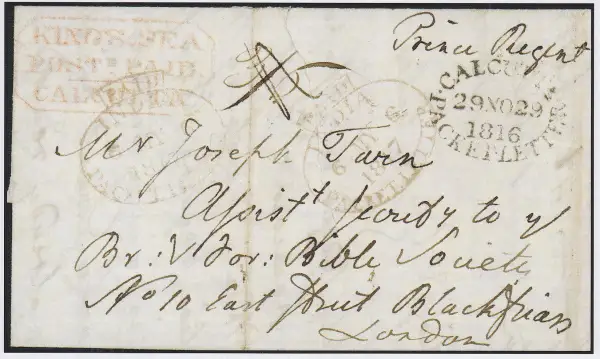 KING'S SEA
POST E PAID
CALCUTTA
Prince Regent
CALCUTTA
29 NO 29
1816
PACKET LETTER
INDIA
1817
PACKET LETTER
INDIA
PACKET LETTER
Mr Joseph Tarn
Assist Secrety to ye
Br: & For: Bible Society
No 10 East Street Blackfriars
London